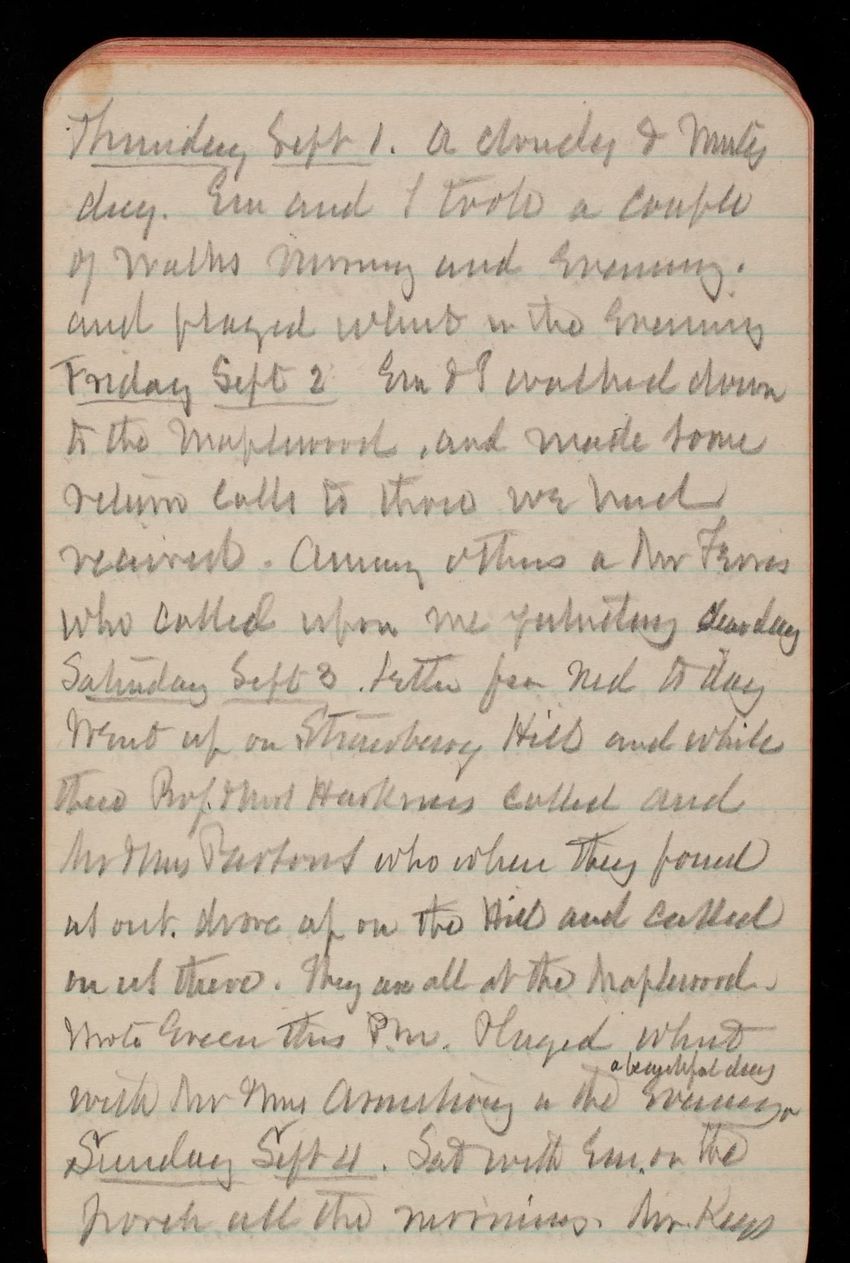 Thursday Sept 1. A cloudy & misty
day. Em and I took a couple
of walks morning and evening.
and played whist in the evening
Friday Sept 2 Em & I walked down
to the Maplewood, and made some
return calls to those we had
received. Among others a Mr
who called upon me yesterday clear day
Saturday Sept 3. Letter from Ned to day
Went up on Strawberry Hill and while
there Prof. & Mrs Harkness called and
Mr & Mrs Parsons who when they found
us out. drove up on the Hill and called
on us there. They are all at the Maplewood.
Wrote Green this P.m. Played whist
a beautiful day
with Mr & Mrs Armstrong in the evening
Sunday Sept 4. Sat with Em. on the
porch all the morning. Mr.